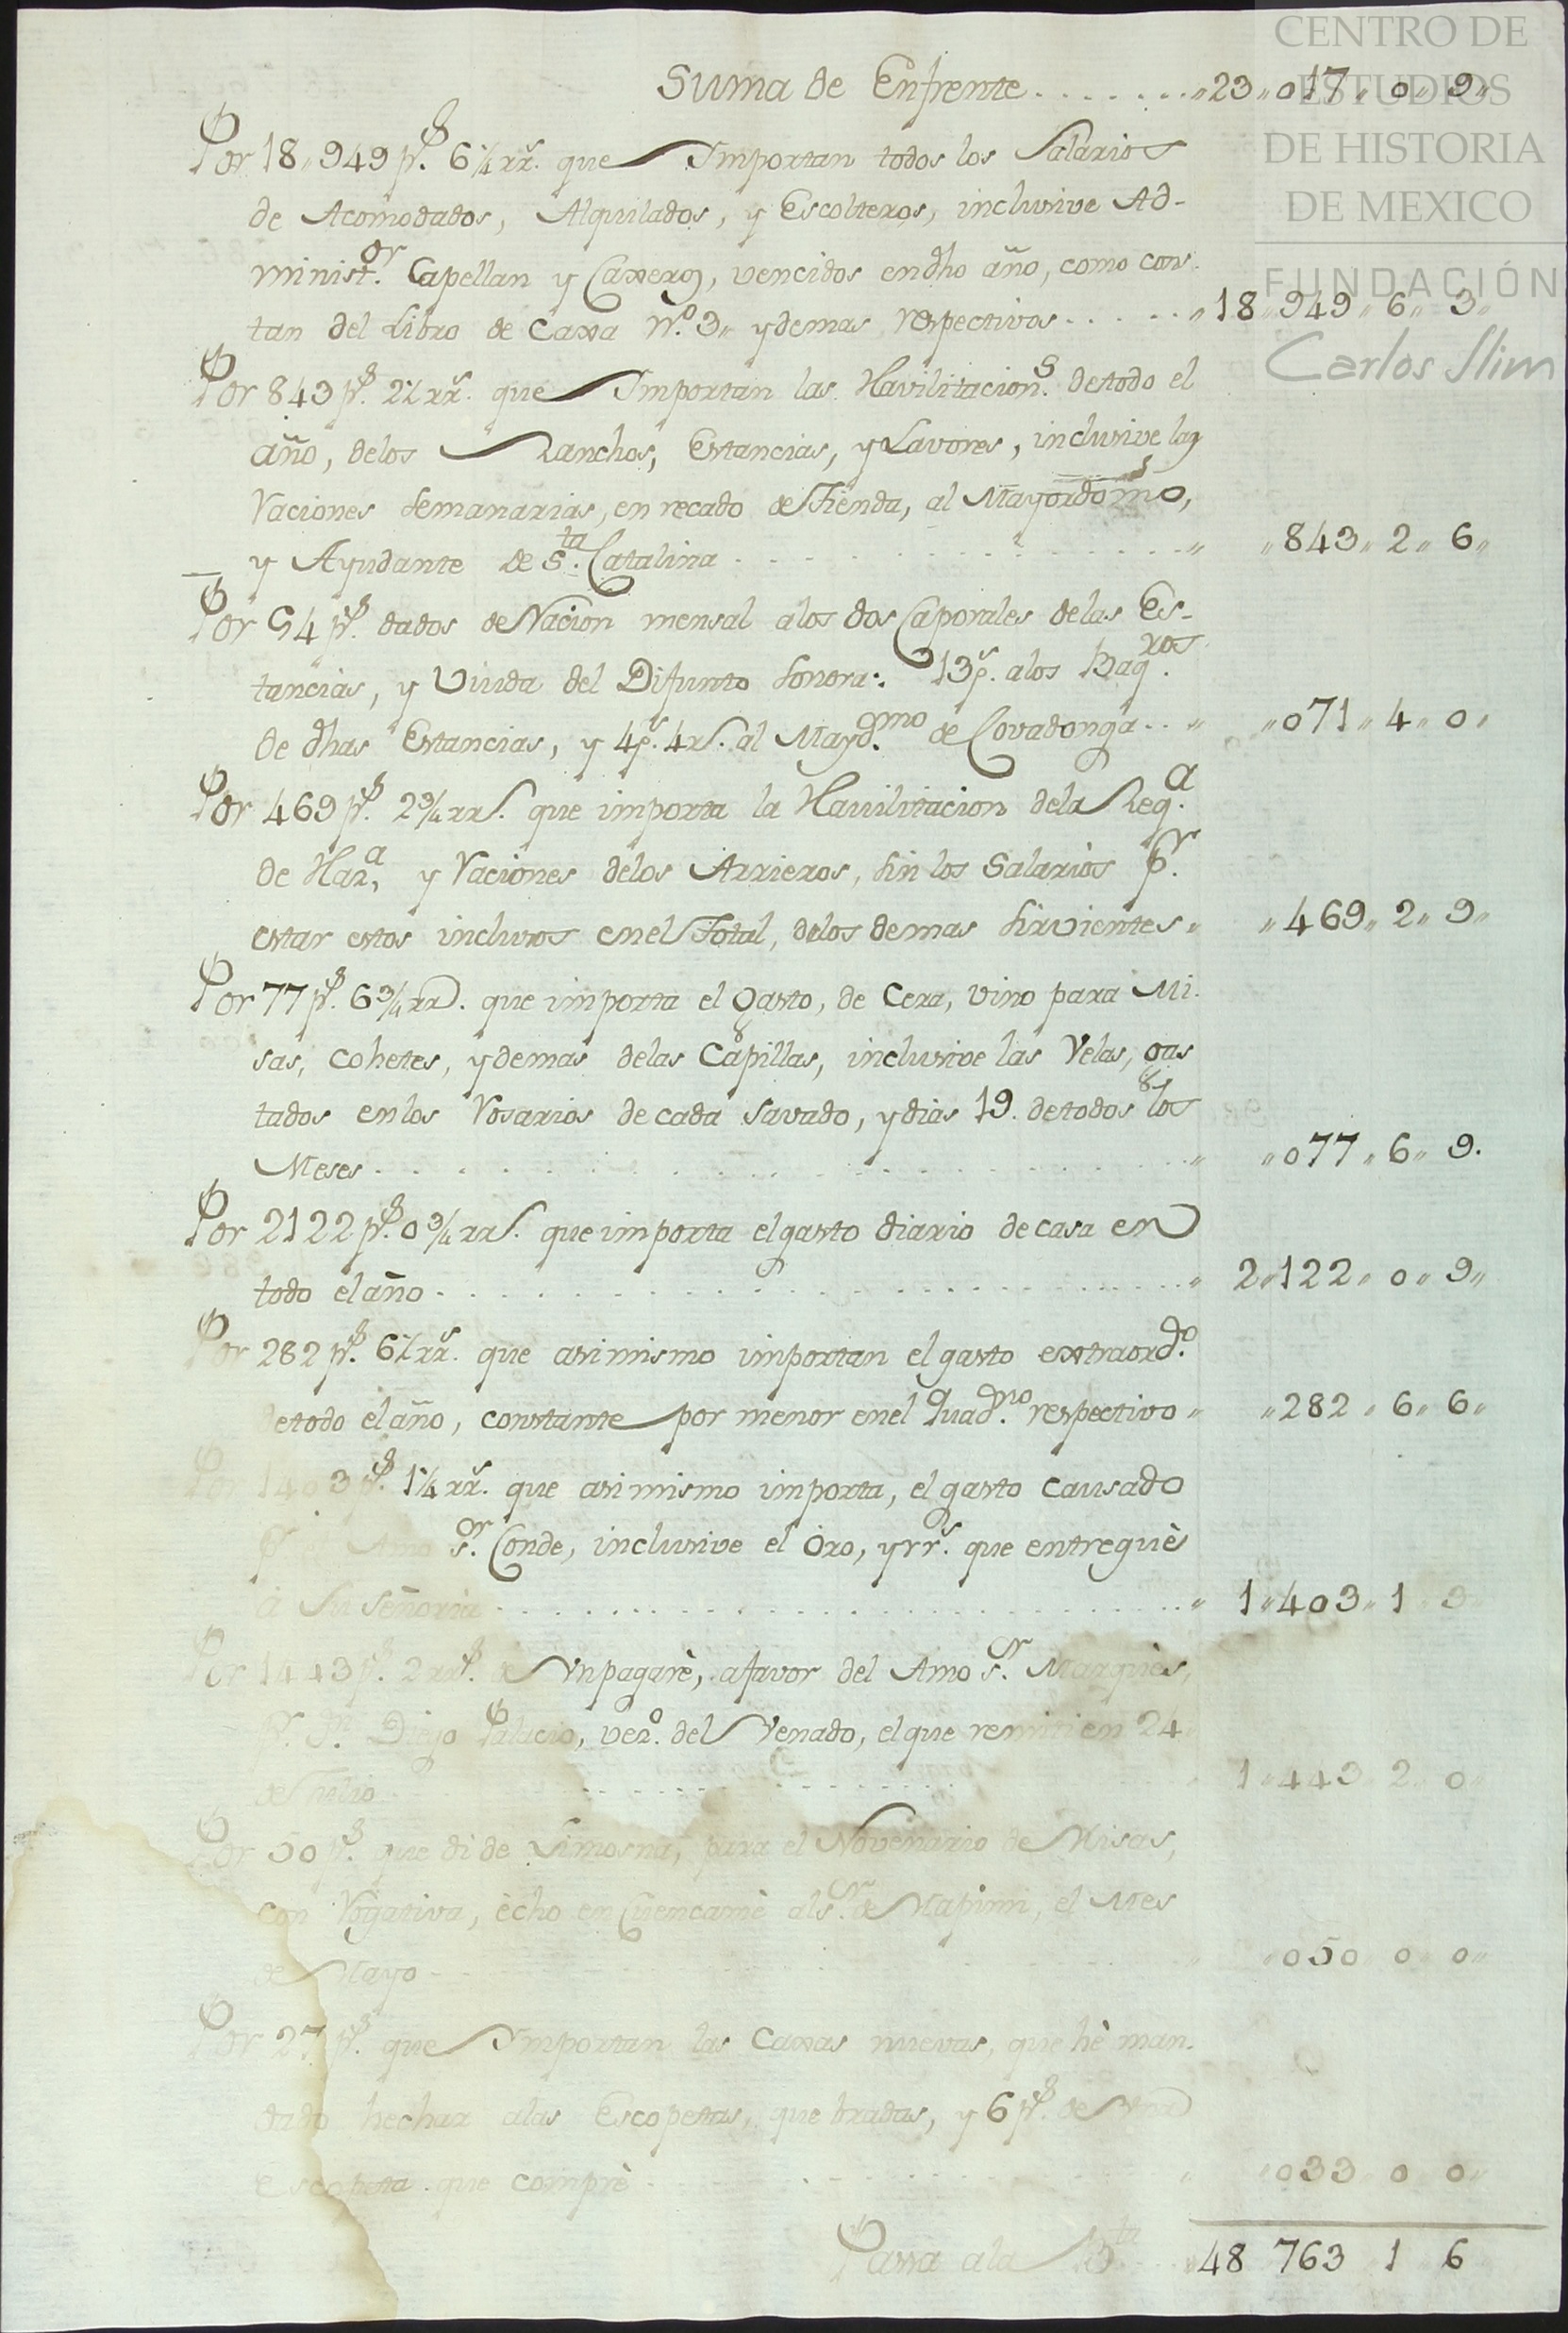 CENTRO DE
ESTUDIOS
DE HISTORIA
DE MEXICO
FUNDACIÓN
Carlos Slim
Suma de Enfrente . . . . . . . „ 23 „ 017 „ 0 „ 9 „
Por 18„949 ps. 6¼ rrs. que Importan todos los Salarios
de Acomodados, Alquilados, y Escolteros, inclusive Ad-
minist.or Capellan y Caxeros, vencidos en dho año, como cons-
tan del Libro de Caxa N.o 3„ y demas respectivos . . . . . „ 18 „ 949 „ 6 „ 3 „
Por 843 ps. 2½ rrs. que Importan las Havilitacion.s de todo el
año, delos Ranchos, Estancias, y Lavores, inclusive las
Raciones semanarias, en recado de Tienda, al Mayordomo,
y Ayudante de S.ta Catalina . . . . . „ „ 843 „ 2 „ 6 „
Por 54 ps. dados de Racion mensal alos dos Caporales delas Es-
tancias, y Viuda del Difunto Sonora: 13 ps. alos Baq.ros
de dhas Estancias, y 4 ps. 4 rs. al Mayd.mo de Covadonga . . „ „ 071 „ 4 „ 0 „
Por 469 ps. 2¾ rrs. que importa la Havilitacion dela Req.a
de Har.a, y Raciones delos Arrieros, sin los Salarios p.r
estar estos inclusos en el Total, delos demas sirvientes „ „ 469 „ 2 „ 9 „
Por 77 ps. 6¾ rrs. que importa el Gasto, de Cera, vino para Mi-
sas, cohetes, y demas delas Capillas, inclusive las Velas, gas
tados en los Rosarios de cada savado, y dias 19. de todos los
Meses . . . . . „ „ 077 „ 6 „ 9.
Por 2122 ps. 0¾ rrs. que importa el gasto diario de casa en
todo el año . . . . . „ 2 „ 122 „ 0 „ 9 „
Por 282 ps. 6½ rrs. que asimismo importan el gasto extraord.o
de todo el año, constante por menor en el Quad.no respectivo „ „ 282 „ 6 „ 6 „
Por 1403 ps. 1¼ rrs. que asimismo importa, el gasto causado
p.r el Amo s.or Conde, inclusive el Oro, y rrs. que entreguè
à Su Señoria . . . . . „ 1 „ 403 „ 1 „ 3
Por 1443 ps. 2 rrs. de Vn pagarè, a favor del Amo s.or Marquès,
p.r D.n Diego Palacio, vez.o del Venado, el que remiti en 24
de Julio . . . . . 1 „ 443 „ 2 „ 0 „
Por 50 ps. que di de Limosna, para el Novenario de Misas,
con Rogativa, echo en Cuencamè al s.or de Mapimi, el Mes
de Mayo . . . . . „ „ 050 „ 0 „ 0 „
Por 27 ps. que Importan las Caxas nuevas, que hè man-
dado hechar alas Escopetas, quebradas, y 6 ps. de Vna
Escopeta que comprè . . . . . „ „ 033 „ 0 „ 0 „
Passa ala . . . „ 48 763 1 6